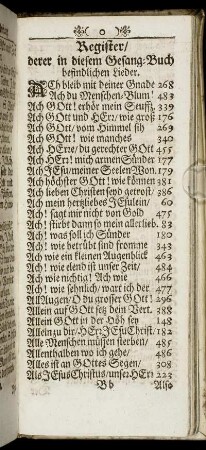 o
Register/
derer in diesem Gesang-Buch
befindlichen Lieder.
ACh bleib mit deiner Gnade 268
Ach du Menschen-Blum! 483
Ach GOtt! erhör mein Seufftz. 339
Ach GOtt und HErr/ wie groß 176
Ach GOtt/ vom Himmel sih 269
Ach GOtt! wie manches 340
Ach HErr/ du gerechter GOtt 455
Ach HErr! mich armen Sünder 177
Ach JEsu/ meiner Seelen Won. 179
Ach höchster GOtt! wie können 381
Ach lieben Christen seyd getrost/ 386
Ach mein hertzliebes JEsulein/ 60
Ach! sagt mir nicht von Gold 475
Ach! stirbt dann so mein allerlieb. 83
Ach! was soll ich Sünder 180
Ach! wie betrübt sind fromme 343
Ach wie ein kleinen Augenblick 463
Ach! wie elend ist unser Zeit/ 484
Ach wie nichtig! Ach wie 466
Ach! wie sehnlich/ wart ich der 477
Allaugen/ O du grosser GOtt! 296
Allein auf GOtt setz dein Vert. 388
Allein GOtt in der Höh sey 148
Allein zu dir/ HErr JEsu Christ/ 182
Alle Menschen müssen sterben/ 485
Allenthalben wo ich gehe/ 486
Alles ist an GOttes Segen/ 308
Als JEsus Christus/ unser HErr 223
Bb Also